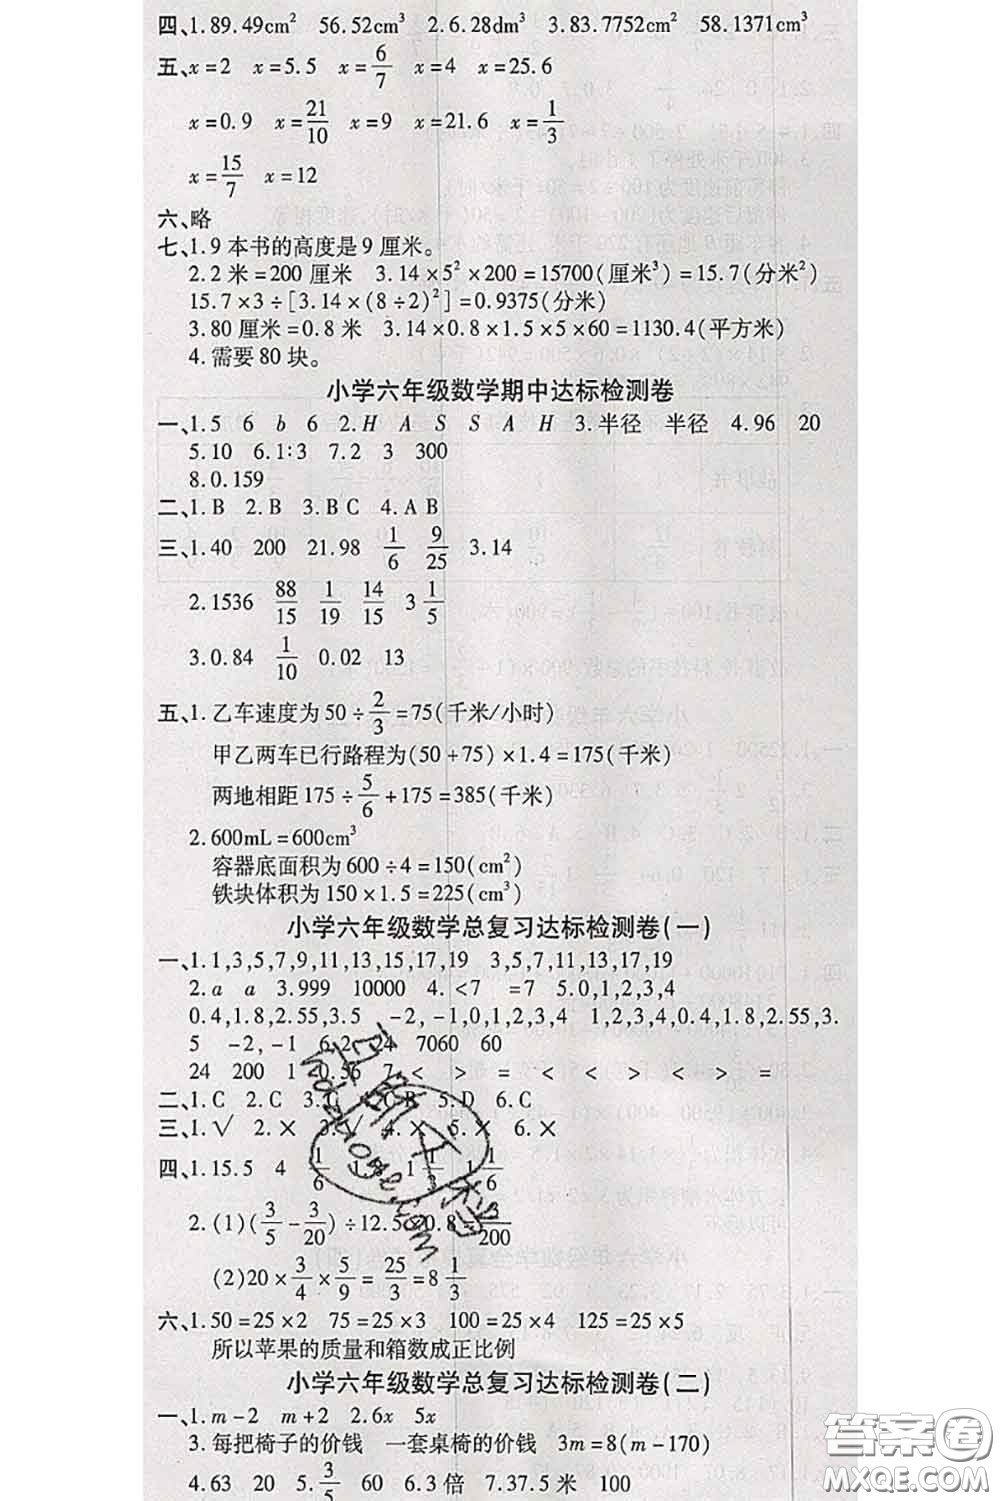 四、1.89.49cm² 56.52cm³ 2.6.28dm³ 3.83.7752cm² 58.1371cm³
五、x=2 x=5.5 x=6/7 x=4 x=25.6
x=0.9 x=21/10 x=9 x=21.6 x=1/3
x=15/7 x=12
六、略
七、1.9本书的高度是9厘米。
2.2米=200厘米 3.14×5²×200=15700(厘米³)=15.7(分米²)
15.7×3÷[3.14×(8÷2)²]=0.9375(分米)
3.80厘米=0.8米 3.14×0.8×1.5×5×60=1130.4(平方米)
4.需要80块。
小学六年级数学期中达标检测卷
一、1.5 6 b 6 2.H A S S A H 3.半径 半径 4.96 20
5.10 6.1∶3 7.2 3 300
8.0.159
二、1.B 2.B 3.B C 4.A B
三、1.40 200 21.98 1/6 9/25 3.14
2.1536 88/15 1/19 14/15 3 1/5
3.0.84 1/10 0.02 13
五、1.乙车速度为50÷2/3=75(千米/小时)
甲乙两车已行路程为(50+75)×1.4=175(千米)
两地相距175÷5/6+175=385(千米)
2.600mL=600cm³
容器底面积为600÷4=150(cm²)
铁块体积为150×1.5=225(cm³)
小学六年级数学总复习达标检测卷(一)
一、1.1,3,5,7,9,11,13,15,17,19 3,5,7,11,13,17,19
2.a a 3.999 10000 4.<7 =7 5.0,1,2,3,4
0.4,1.8,2.55,3.5 -2,-1,0,1,2,3,4 1,2,3,4,0.4,1.8,2.55,3.
5 -2,-1 6.2 24 7060 60
24 200 1 0.56 7.< > = < < > < > =
二、1.C 2.C 3.C 4.C B 5.D 6.C
三、1.√ 2.× 3.√ 4.× 5.× 6.×
四、1.15.5 4 1/6 1 1/3 1/6
2.(1)(3/5-3/20)÷12.5 0.8 3/200
(2)20×3/4×5/9=25/3=8 1/3
六、1.50=25×2 75=25×3 100=25×4 125=25×5
所以苹果的质量和箱数成正比例
小学六年级数学总复习达标检测卷(二)
一、1.m-2 m+2 2.6x 5x
3.每把椅子的价钱 一套桌椅的价钱 3m=8(m-170)
4.63 20 5.3/5 60 6.3倍 7.37.5米 100
答案圈
MXQE.COM